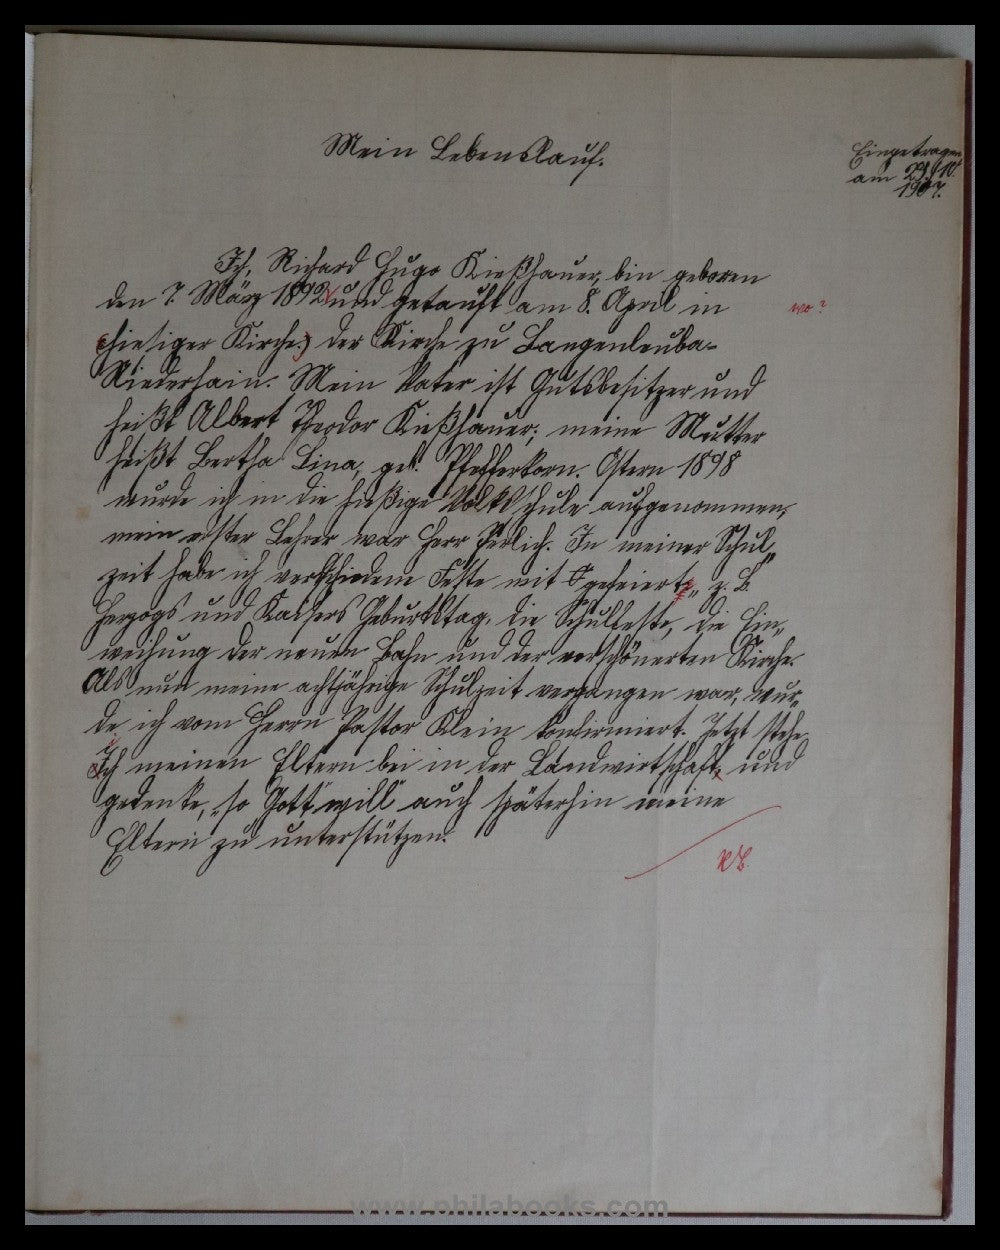 Mein Lebenslauf.
Eingetragen
am 29./10.
1907.
Ich, Richard Hugo Kießhauer, bin geboren
den 7. März 1892 und getauft am 8. April in
wo?
(hiesiger Kirche.) der Kirche zu Langenleuba-
Niederhain. Mein Vater ist Gutsbesitzer und
heißt Albert Theodor Kießhauer; meine Mutter
heißt Bertha Lina, geb. Pfefferkorn. Ostern 1898
wurde ich in die hießige Volksschule aufgenommen,
mein erster Lehrer war Herr Perlich. In meiner Schul„
zeit habe ich verschiedene Feste mit gefeiert, z. B.
Herzogs und Kaisers Geburtstag, die Schulfeste, die Ein„
weihung der neuen Bahn und der verschönerten Kirche.
Als nun meine achtjährige Schulzeit vergangen war, wur„
de ich vom Herrn Pastor Klein konfirmiert. Jetzt stehe
Ich meinen Eltern bei in der Landwirtschaft, und
gedenke, „so Gott will“ auch späterhin meine
Eltern zu unterstützen.
www.philabooks.com